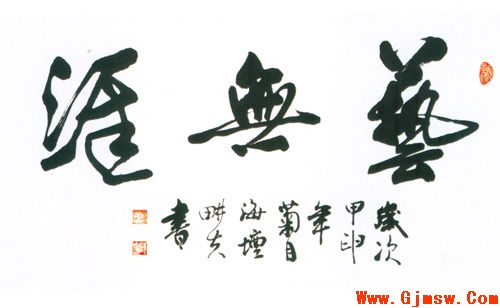 藝無涯
歲次
甲申
年
菊月
海壇
耕夫
書
www.Gjmsw.Com